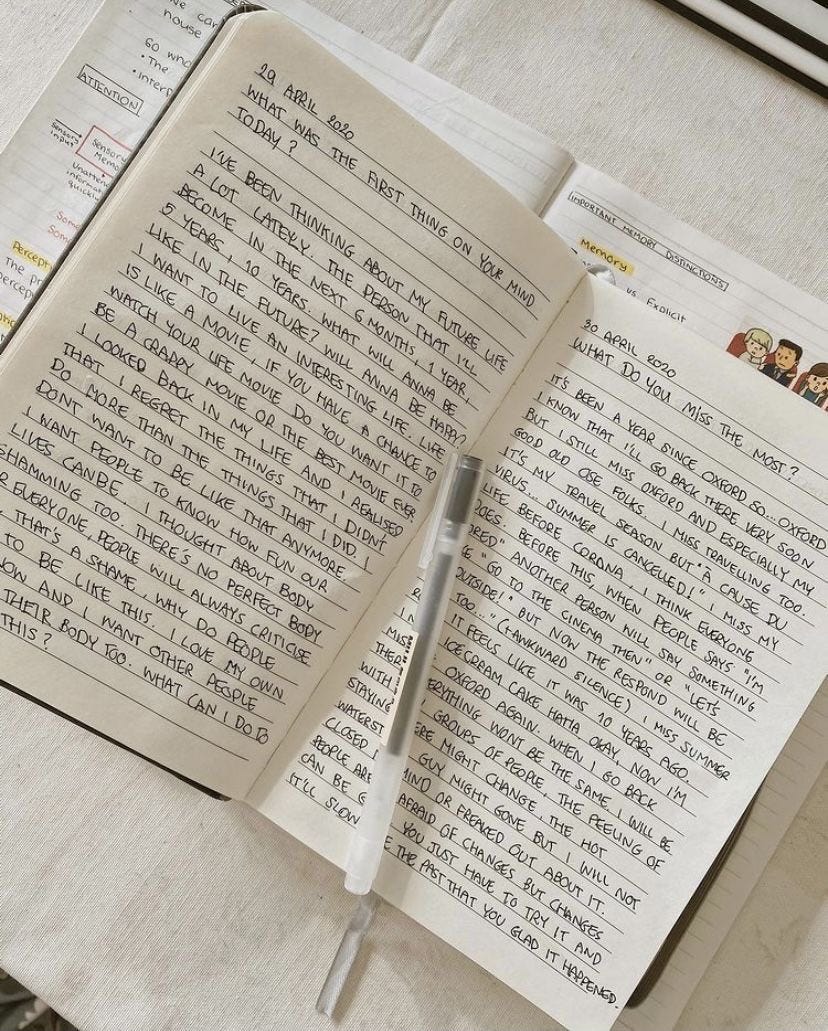 we can
house
Go who
• The
• Interp
ATTENTION
Sensory
input
Sensory
Memo
Unatten
informat
quickly
Some
Som
Percept
The pr
percep
29 APRIL 2020
WHAT WAS THE FIRST THING ON YOUR MIND
TODAY?
I'VE BEEN THINKING ABOUT MY FUTURE LIFE
A LOT LATELY. THE PERSON THAT I'LL
BECOME IN THE NEXT 6 MONTHS, 1 YEAR,
5 YEARS, 10 YEARS. WHAT WILL ANNA BE
LIKE IN THE FUTURE? WILL ANNA BE HAPPY?
I WANT TO LIVE AN INTERESTING LIFE. LIFE
IS LIKE A MOVIE, IF YOU HAVE A CHANCE TO
WATCH YOUR LIFE MOVIE DO YOU WANT IT TO
BE A CRAPPY MOVIE OR THE BEST MOVIE EVER.
I LOOKED BACK IN MY LIFE AND I REALISED
THAT I REGRET THE THINGS THAT I DIDN'T
DO MORE THAN THE THINGS THAT I DID. I
DONT WANT TO BE LIKE THAT ANYMORE.
I WANT PEOPLE TO KNOW HOW FUN OUR
LIVES CAN BE. I THOUGHT ABOUT BODY
SHAMMING TOO. THERE'S NO PERFECT BODY
R EVERYONE, PEOPLE WILL ALWAYS CRITICISE
THAT'S A SHAME, WHY DO PEOPLE
TO BE LIKE THIS. I LOVE MY OWN
NOW AND I WANT OTHER PEOPLE
THEIR BODY TOO. WHAT CAN I DO TO
THIS?
IMPORTANT MEMORY DISTINCTIONS
Memory
vs. Explicit
30 APRIL 2020
WHAT DO YOU MISS THE MOST?
IT'S BEEN A YEAR SINCE OXFORD SO... OXFORD
I KNOW THAT I'LL GO BACK THERE VERY SOON
BUT I STILL MISS OXFORD AND ESPECIALLY MY
GOOD OLD OSE FOLKS. I MISS TRAVELLING TOO.
IT'S MY TRAVEL SEASON BUT "À CAUSE DU
VIRUS... SUMMER IS CANCELLED!" I MISS MY
LIFE BEFORE CORONA. I THINK EVERYONE
DOES. BEFORE THIS, WHEN PEOPLE SAYS "I'M
ORED" ANOTHER PERSON WILL SAY SOMETHING
"GO TO THE CINEMA THEN" OR "LET'S
OUTSIDE!" BUT NOW THE RESPOND WILL BE
TOO..." (AWKWARD SILENCE) I MISS SUMMER
IT FEELS LIKE IT WAS 10 YEARS AGO.
MISS ICECREAM CAKE HAHA OKAY, NOW I'M
THER OXFORD AGAIN. WHEN I GO BACK
WITH ERYTHING WONT BE THE SAME. I WILL BE
STAYING GROUPS OF PEOPLE, THE FEELING OF
WATERST ERE MIGHT CHANGE, THE HOT
CLOSED GUY MIGHT GONE BUT I WILL NOT
PEOPLE ARE MIND OR FREAKED OUT ABOUT IT.
CAN BE AFRAID OF CHANGES BUT CHANGES
IT'LL SLOW YOU JUST HAVE TO TRY IT AND
THE PAST THAT YOU GLAD IT HAPPENED.